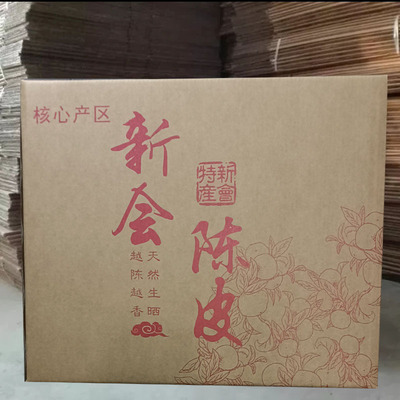 核心产区
新会
陈皮
新會
特產
天然生晒
越陈越香